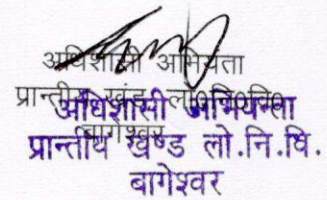 अधिशासी अभियंता
प्रान्तीय खंड लो०नि०वि०
बागेश्वर
अधिशासी अभियन्ता
प्रान्तीय खण्ड लो.नि.वि.
बागेश्वर